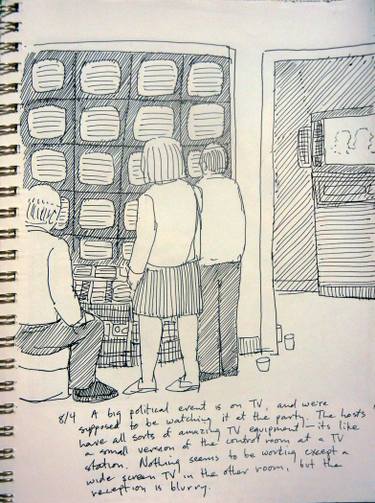 8/4 A big political event is on TV, and we're
supposed to be watching it at the party. The hosts
have all sorts of amazing TV equipment - it's like
a small version of the control room at a TV
station. Nothing seems to be working except a
wide screen TV in the other room, but the
reception is blurry.